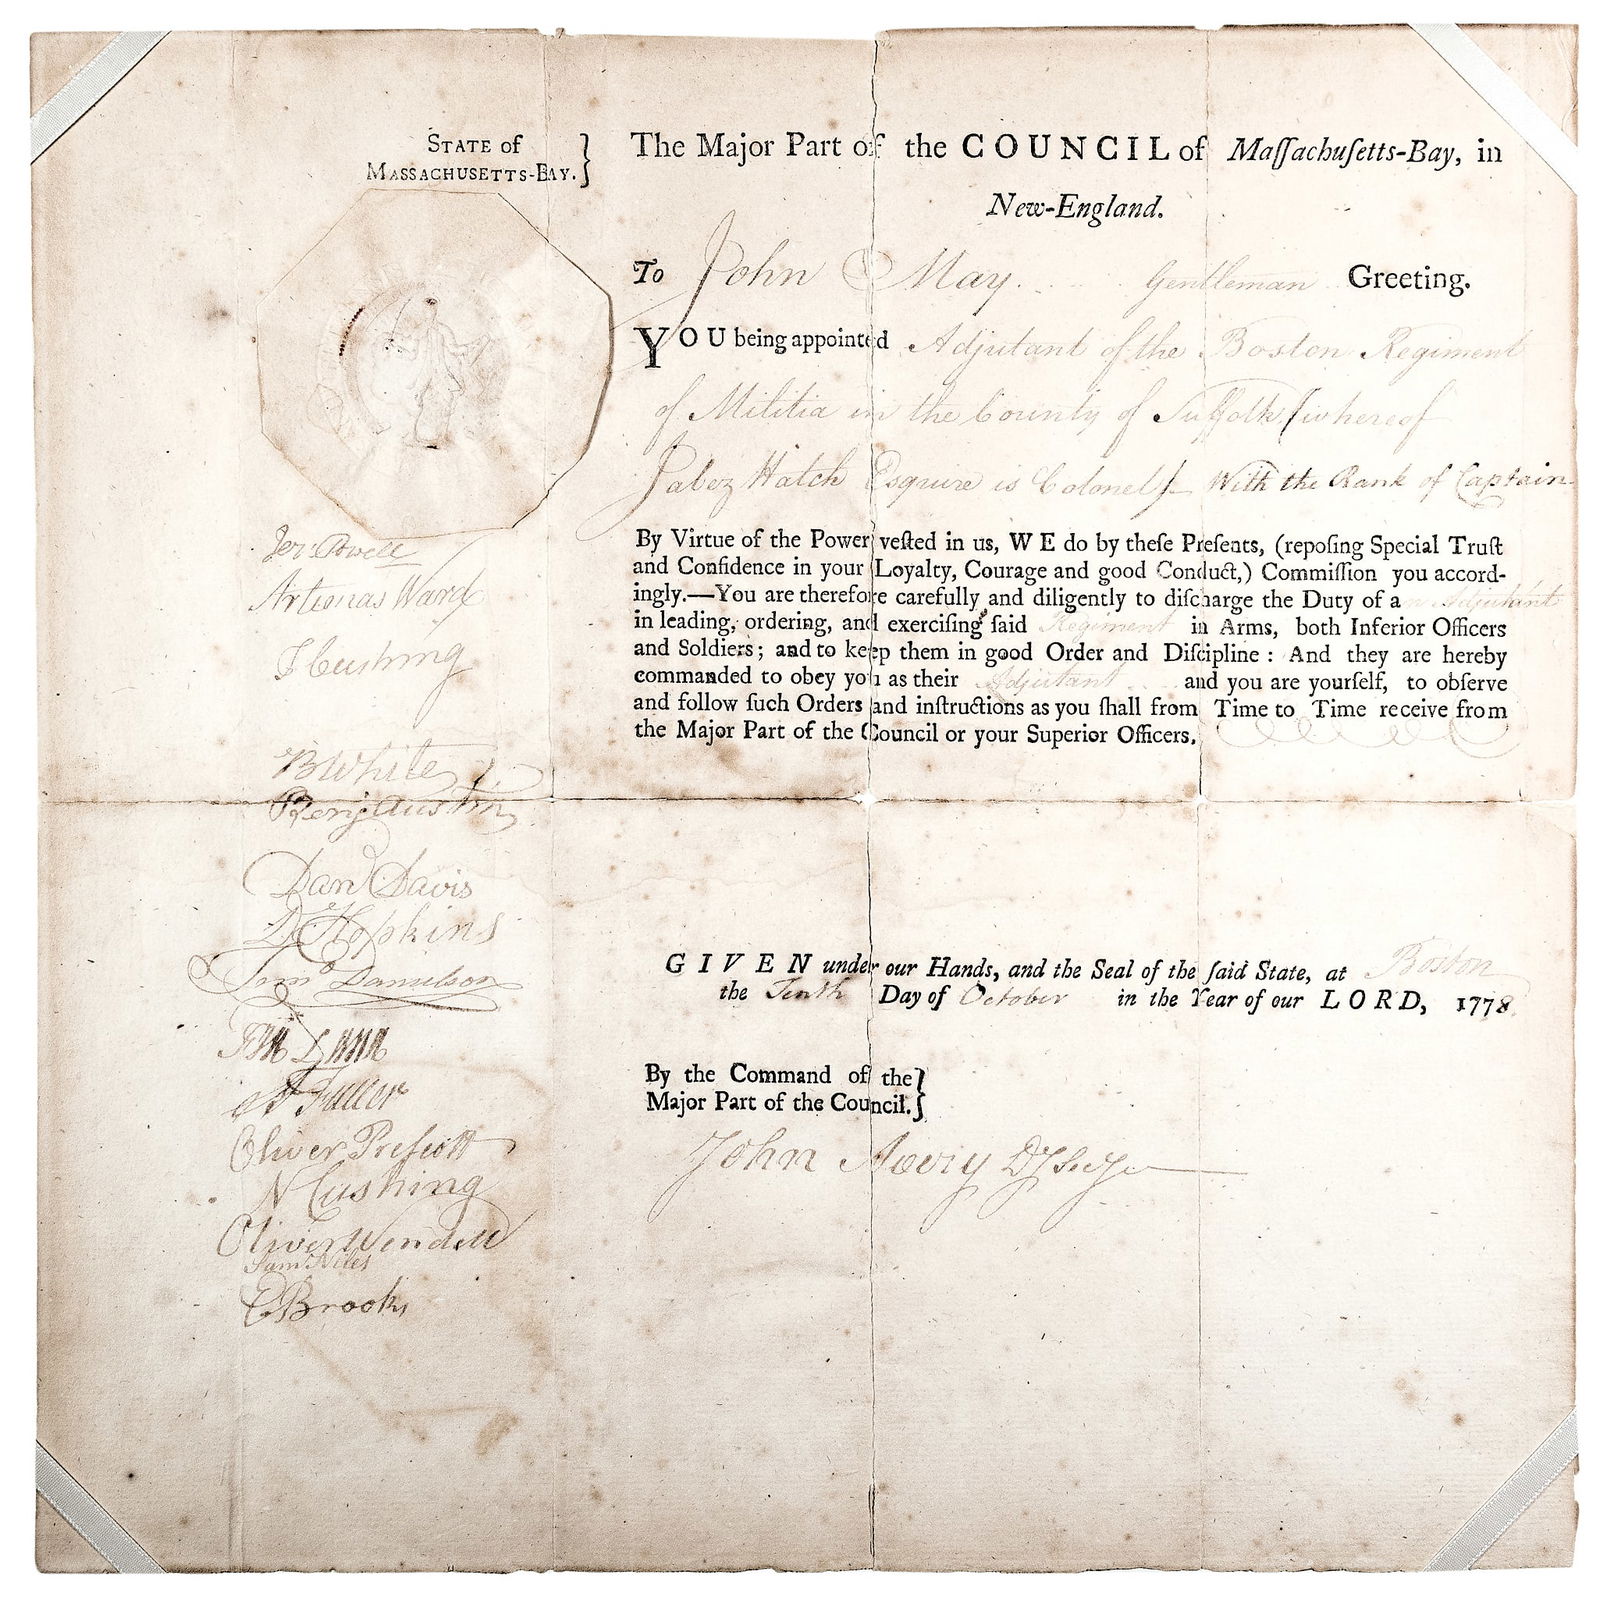 STATE of
MASSACHUSETTS-BAY. }
The Major Part of the COUNCIL of Maſſachuſetts-Bay, in
New-England.
To John May Gentleman Greeting.
YOU being appointed Adjutant of the Boston Regiment
of Militia in the County of Suffolk (whereof
Jabez Hatch Esquire is Colonel) With the Rank of Captain
By Virtue of the Power veſted in us, WE do by theſe Preſents, (repoſing Special Truſt
and Confidence in your Loyalty, Courage and good Conduct,) Commiſſion you accord-
ingly.—You are therefore carefully and diligently to diſcharge the Duty of an Adjutant
in leading, ordering, and exerciſing ſaid Regiment in Arms, both Inferior Officers
and Soldiers; and to keep them in good Order and Diſcipline: And they are hereby
commanded to obey you as their Adjutant and you are yourſelf, to obſerve
and follow ſuch Orders and inſtructions as you ſhall from Time to Time receive from
the Major Part of the Council or your Superior Officers.
Jer: Powell
Artemas Ward
T Cushing
B White
Benj Austin
Dan Davis
D Hopkins
Tim Danielson
A Fuller
Oliver Preſcott
N Cushing
Oliver Wendell
Sam Niles
E Brooks
GIVEN under our Hands, and the Seal of the ſaid State, at Boston
the Tenth Day of October in the Year of our LORD, 1778
By the Command of the }
Major Part of the Council.
John Avery Dy Secy